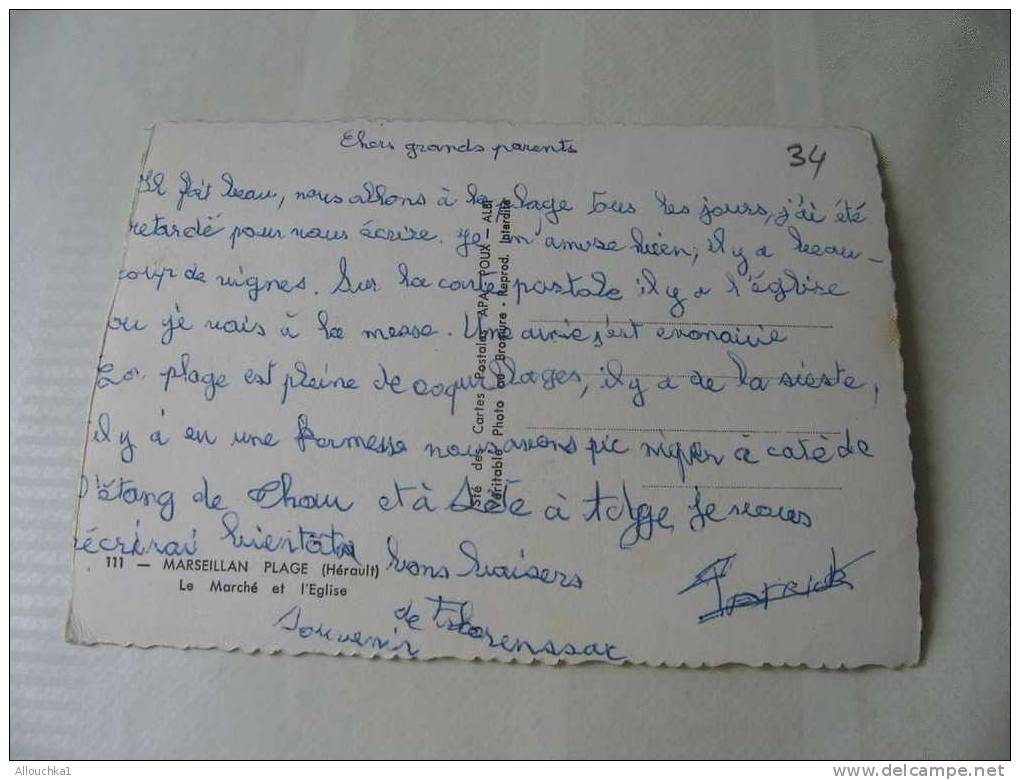 Chers grands parents
34
Il fait beau, nous allons à la plage tous les jours, j'ai été
retardé pour vous écrire. Je m'amuse bien, il y a beau-
coup de vignes. Sur la carte postale il y a l'église
ou je vais à la messe. Une
La plage est pleine de coquillages, il y a de la sieste,
il y a eu une kermesse nous avons pic niquer à catè de
l'étang de Thau et à Sète à Adge, je vous
écrirai bientôt bons baisers
Patrick
Souvenir de Florenssac
111 — MARSEILLAN PLAGE (Hérault)
Le Marché et l'Eglise
Sté des Cartes Postales APA - POUX - ALBI
Véritable Photo au Bromure - Reprod. Interdite
Allouchka1
delcampe.net